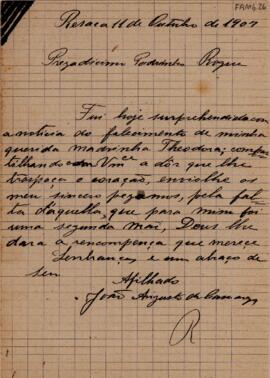 FAM6.26
Resaca 11 de Outubro de 1907
Prezadissimo Padrinho Roque
Fui hoje surprehendido com
a noticia do fallecimento de minha
querida madrinha Theodora; compar
telhando com Vm.ce a dôr que lhe
traspaça o coração, envio lhe os
meu sincero pezames, pela fal-
ta daquella que para mim foi
uma segunda mãi, Deus lhe
dara a recompença que merece
Lembranças e um abraço de
seu
Afilhado
João Augusto de Camargo
R